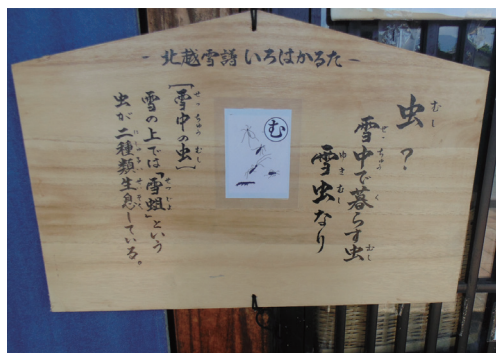 - 北越雪譜 いろはかるた -
虫？
雪中で暮らす虫
雪虫なり
む
[雪中の虫]
雪の上では「雪蛆」という
虫が二種類生息している。